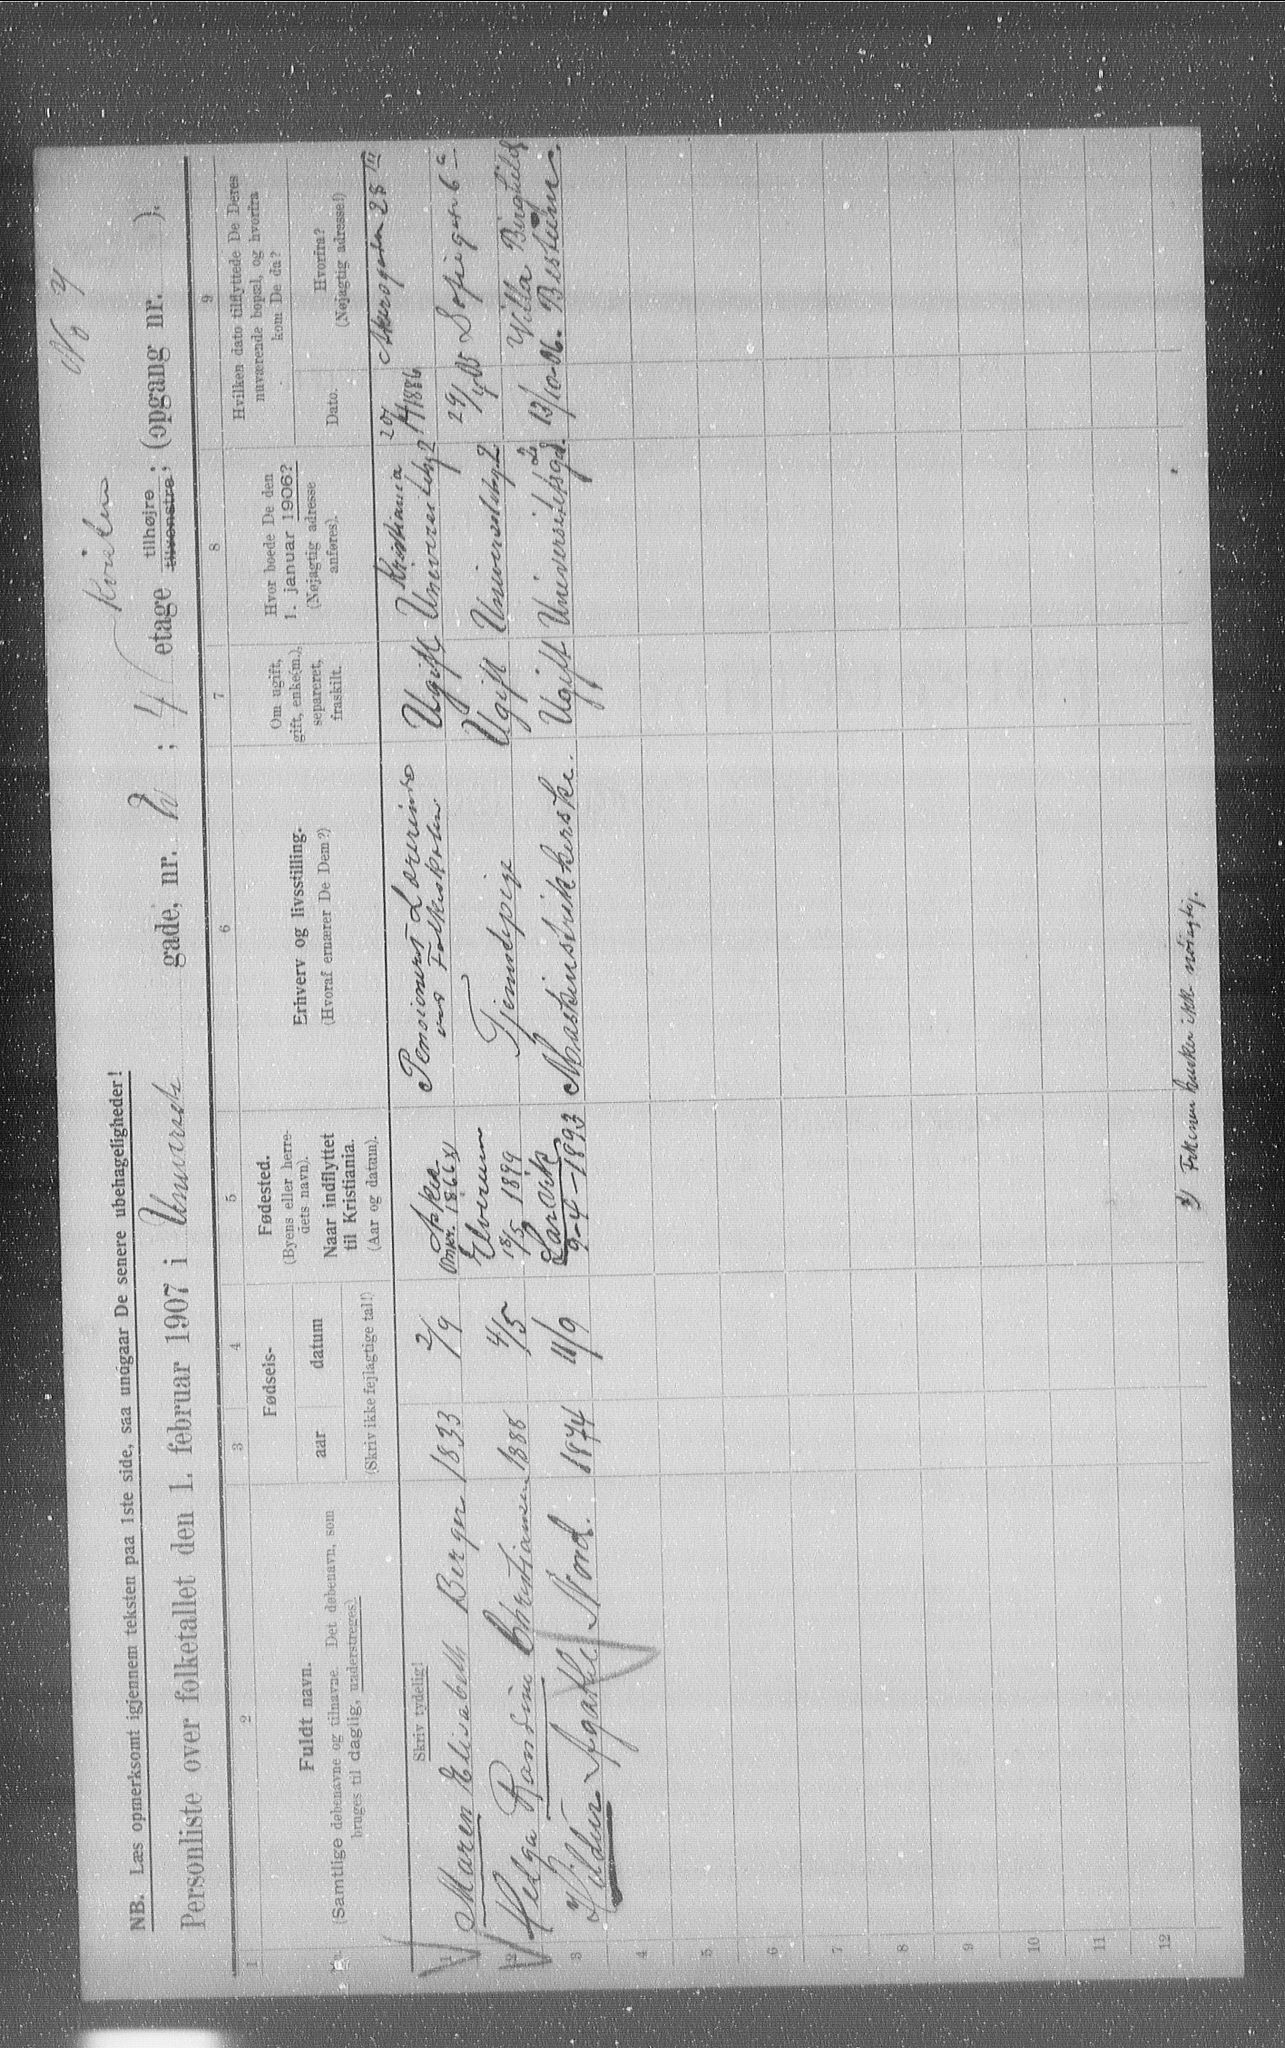 No 4
Kvisten
NB. Læs opmerksomt igjennem teksten paa 1ste side, saa undgaar De senere ubehageligheder!
Personliste over folketallet den 1. februar 1907 i Universits gade, nr. 2 ; 4 etage tilhøjre ; (opgang nr. ).
tilvenstre
1 2 3 4 5 6 7 8 9
Nr.
Fuldt navn.
(Samtlige døbenavne og tilnavne. Det døbenavn, som
bruges til daglig, understreges).
Fødsels-
aar
datum
(Skriv ikke fejlagtige tal!)
Fødested.
(Byens eller herre-
dets navn).
Naar indflyttet
til Kristiania.
(Aar og datum).
Erhverv og livsstilling.
(Hvoraf ernærer De Dem?)
Om ugift,
gift, enke(m.),
separeret,
fraskilt.
Hvor boede De den
1. januar 1906?
(Nøjagtig adresse
anføres).
Hvilken dato tilflyttede De Deres
nuværende bopæl, og hvorfra
kom De da?
Dato.
Hvorfra?
(Nøjagtig adresse!)
Skriv tydelig!
1 Maren Elisabeth Berger 1833 2/9 Omkr. 1866 x) Pensioneret Lærerinde ved Folkeskolen Ugift Kristiania Universitetsg 2 20/4 1886 Akersgaden 28 III
2 Helga Randine Christiansen 1888 4/5 Elverum 18/5 1899 Tjenestepige Ugift Universitetsg. 2 29/4 05 Sofiegaten 6 a
3 Hildur Agathe Nord. 1874 11/9 Larvik 9-4-1893 Maskinstrikkerske. Ugift Universitetsgd. 2 13/10-06. Villa Borghild Bestum.
4
5
6
7
8
9
10
11
12
x) Frøkenen husker ikke nøiagtig.